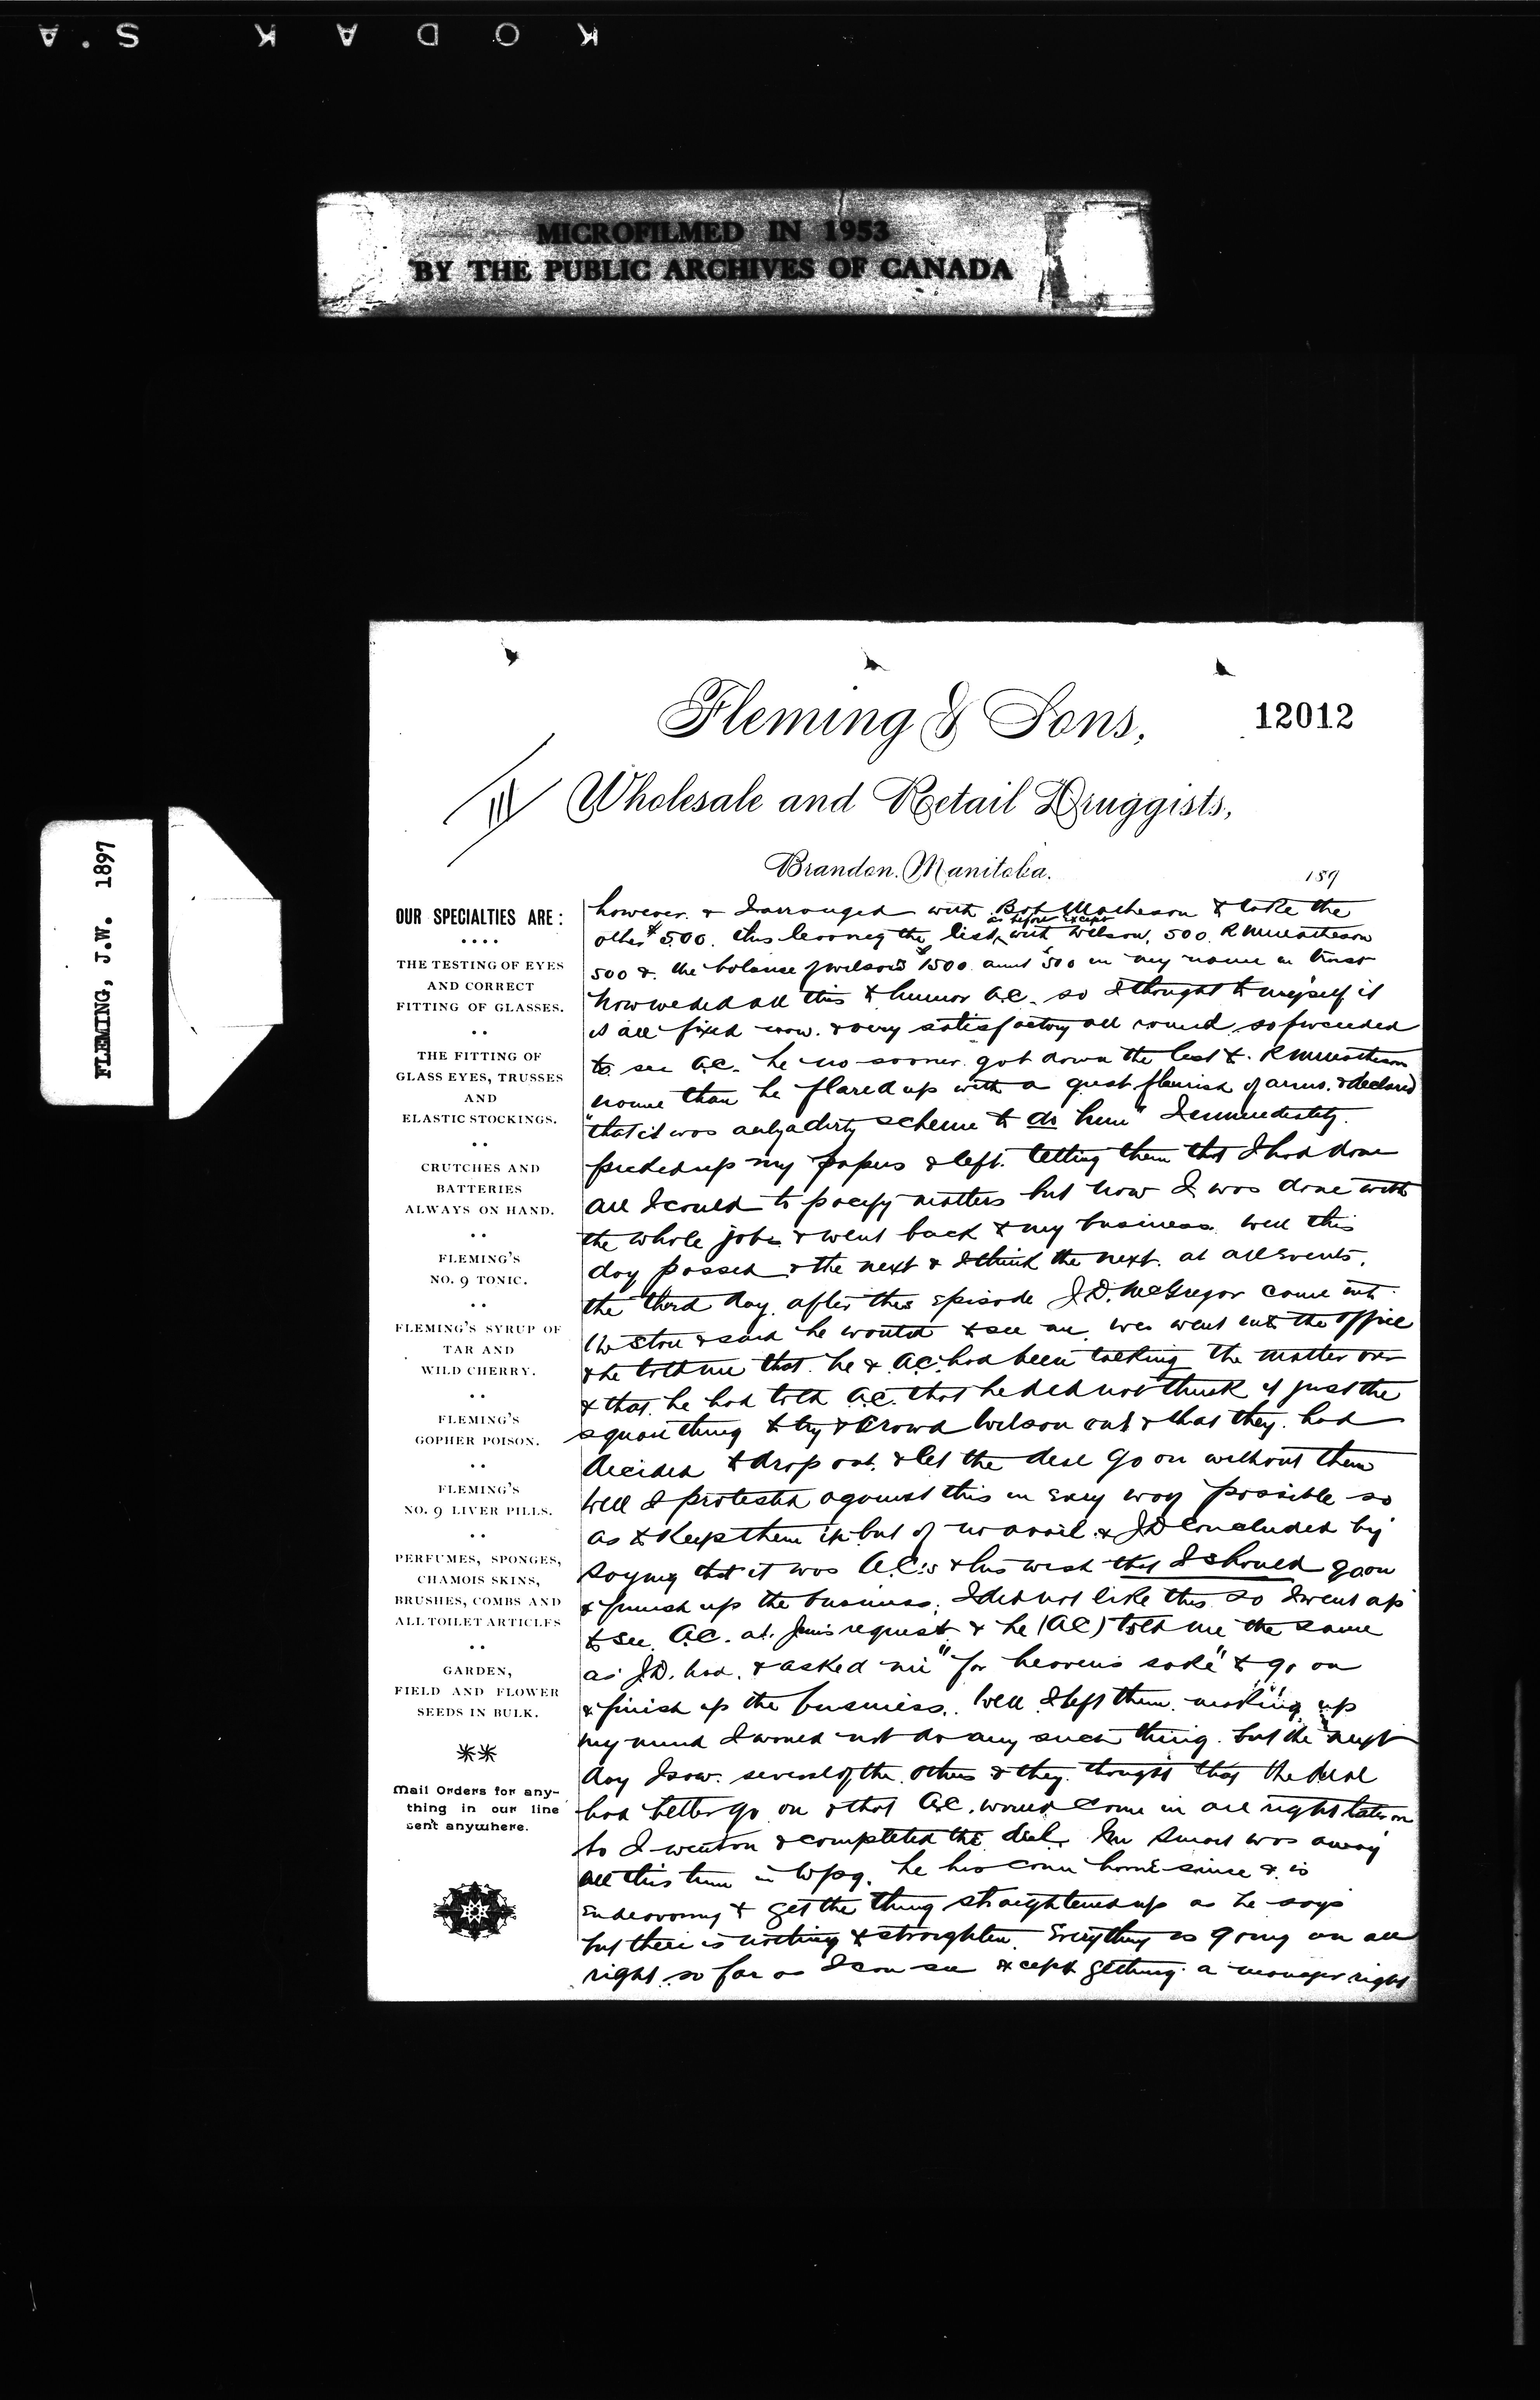 KODAK S.A
MICROFILMED IN 1953
BY THE PUBLIC ARCHIVES OF CANADA
FLEMING, J.W. 1897
Fleming & Sons,
12012
Wholesale and Retail Druggists,
Brandon, Manitoba.
189
OUR SPECIALTIES ARE:
THE TESTING OF EYES
AND CORRECT
FITTING OF GLASSES.
THE FITTING OF
GLASS EYES, TRUSSES
AND
ELASTIC STOCKINGS.
CRUTCHES AND
BATTERIES
ALWAYS ON HAND.
FLEMING'S
NO. 9 TONIC.
FLEMING'S SYRUP OF
TAR AND
WILD CHERRY.
FLEMING'S
GOPHER POISON.
FLEMING'S
NO. 9 LIVER PILLS.
PERFUMES, SPONGES,
CHAMOIS SKINS,
BRUSHES, COMBS AND
ALL TOILET ARTICLES
GARDEN,
FIELD AND FLOWER
SEEDS IN BULK.
Mail Orders for any-
thing in our line
sent anywhere.
however & I arranged with Bob Matheson to take the
other $500. this leaving the list as before except with Wilson, 500. R M Matheson
500 & the balance of Wilson's $1500 amt $500 in my name in trust
now we did all this to humor A.C. so I thought to myself it
is all fixed now. & very satisfactory all round so proceeded
to see A.C. he no sooner got down the list to R M Matheson
name than he flared up with a great flourish of arms. & declared
"that it was only a dirty scheme to do him" I immediately
picked up my papers & left. telling them that I had done
all I could to pacify matters but now I was done with
the whole job & went back to my business. Well this
day passed & the next & I think the next. at all events,
the third day after this episode J.D. McGregor came into
the store & said he wanted to see me. we went into the office
& he told me that he & A.C. had been talking the matter over
& that he had told A.C. that he did not think it just the
square thing to try & crowd Wilson out & that they had
decided to drop out. & let the deal go on without them
Well I protested against this in every way possible so
as to keep them in but of no avail & J.D. concluded by
saying that it was A.C.'s & his wish that I should go on
& finish up the business. I did not like this so I went up
to see A.C. at Jim's request & he (AC) told me the same
as J.D. had. & asked me "for heavens sake" to go on
& finish up the business. Well I left them making up
my mind I would not do any such thing. but the next
day I saw several of the others & they thought that the deal
had better go on & that A.C. would come in all right later on
so I went on & completed the deal. Jim Smart was away
all this time in Wpg. he has come home since & is
endeavoring to get the thing straightened up as he says
but there is nothing to straighten. Everything is going on all
right so far as I can see except getting a manager right